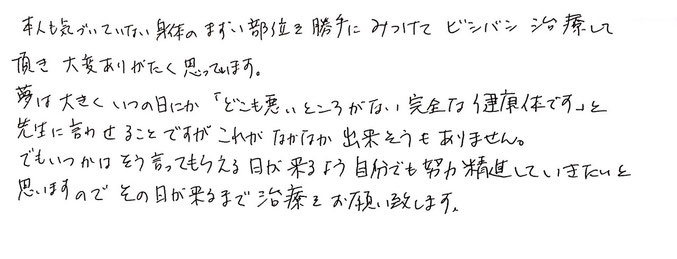 本人も気づいていない身体のまずい部位を勝手にみつけてビシバシ治療して
頂き大変ありがたく思っています。
夢は大きくいつの日にか「どこも悪いところがない完全な健康体です」と
先生に言わせることですがこれがなかなか出来そうもありません。
でもいつかはそう言ってもらえる日が来るよう自分でも努力精進していきたいと
思いますのでその日が来るまで治療をお願い致します。